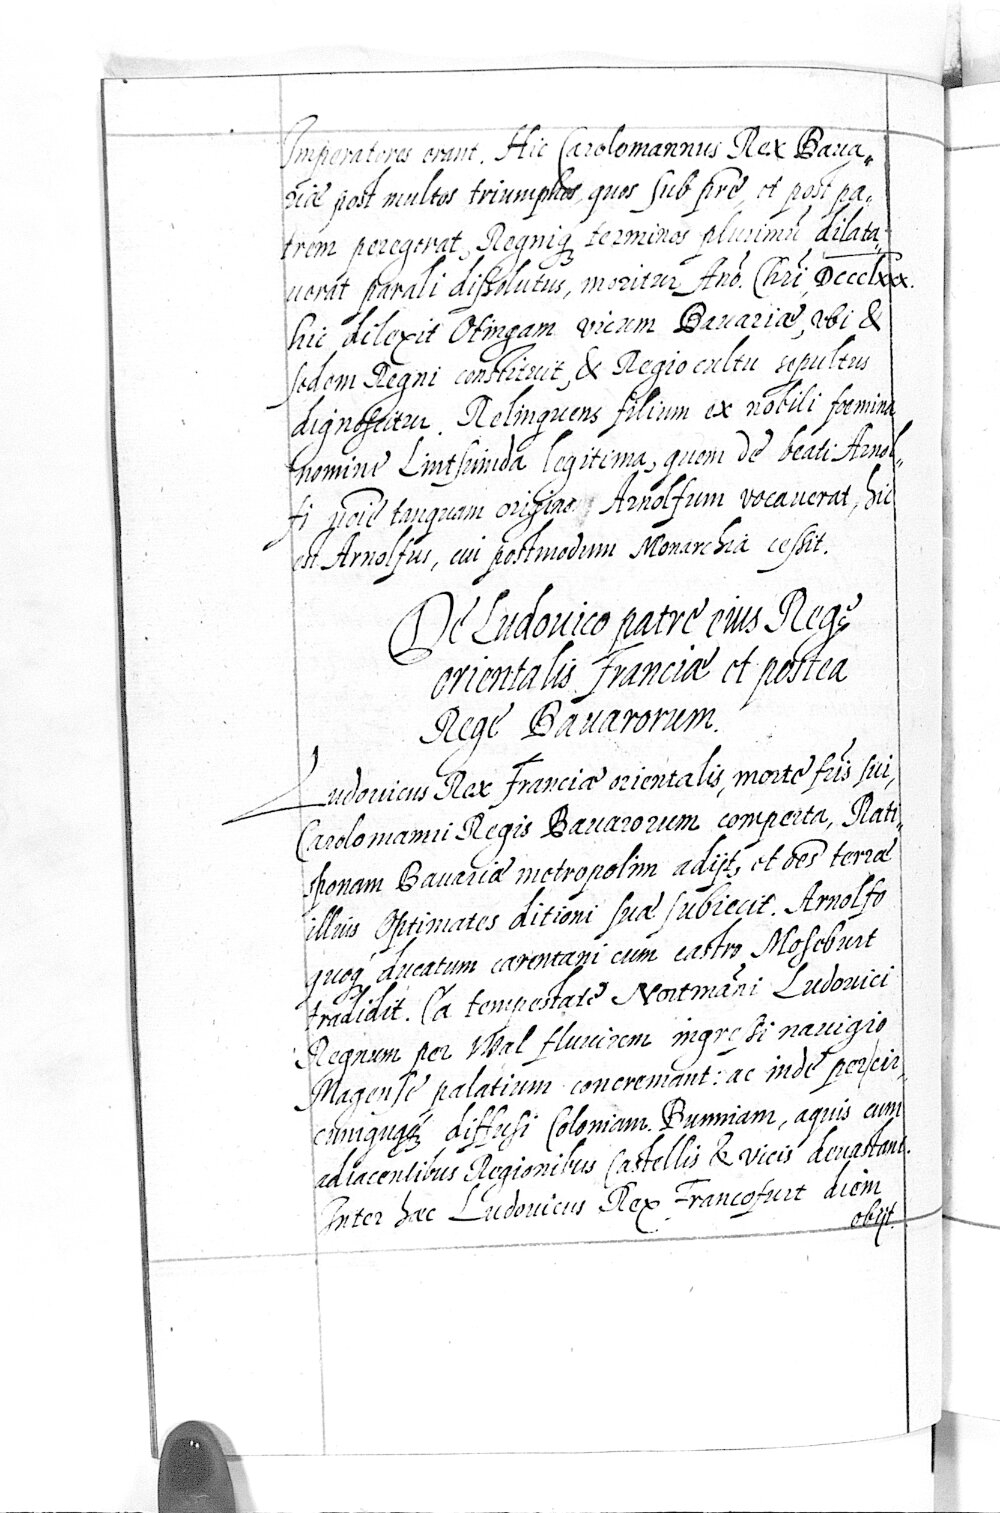 Imperatores erant. Hic Carolomannus Rex Baua„
riæ post multos triumphos, quos sub pr̄e, et post pa„
trem peregerat, Regniq; terminos plurimū dilata„
uerat parali dissolutus, moritur Anō. Chr̄i, DCCCLXXX.
hic dilexit Otingam vicum Bauariæ, vbi &
sedem Regni constituit, & Regio cultu sepultus
dignoscitur. Relinquens filium ex nobili foemina
nomine Lintsuinda legitima, quem de beati Arnol„
fi noīe tanquam origine Arnolfum vocauerat, hic
est Arnolfus, cui postmodum Monarchia cessit.
De Ludouico patre eius Rege
orientalis Franciæ et postea
Rege Bauarorum.
Ludouicus Rex Franciæ orientalis, morte fr̄is sui,
Carolomanni Regis Bauarorum comperta, Rati„
sponam Bauariæ metropolim adijt, et oēs terræ
illius Optimates ditioni suæ subiecit. Arnolfo
quoq; ducatum carentani cum castro Moseburt
tradidit. Ea tempestate Nortmāni Ludouici
Regnum per Wal fluuium ingressi nauigio
Magense palatium concremant: ac inde per cir„
cumquaq; diffusi Coloniam. Bunniam, aquis cum
adiacentibus Regionibus Castellis & vicis deuastant.
Inter hæc Ludouicus Rex Francofurt diem
obijt.